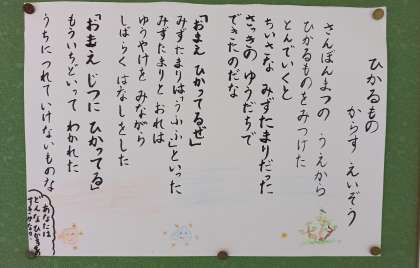 ひかるもの
からす えいぞう
さんぼんまつの うえから
ひかるものを みつけた
とんでいくと
ちいさな みずたまりだった
さっきの ゆうだちで
できたのだな
「おまえ ひかってるぜ」
みずたまりは「うふふ」といった
みずたまりと おれは
ゆうやけを みながら
しばらく はなしをした
「おまえ じつに ひかってる」
もういちどいって わかれた
うちにつれていけないものな
あなたは
どんなひかるもの